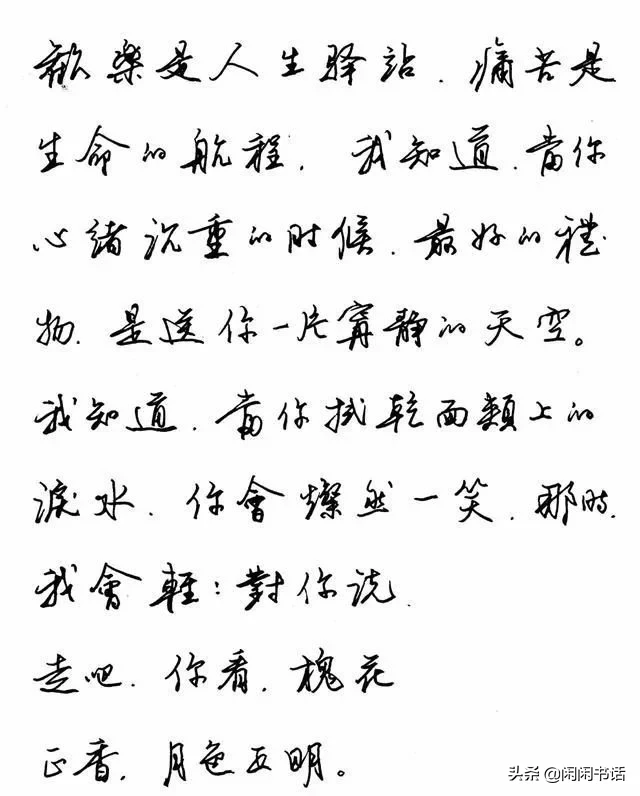 歡樂是人生驿站．痛苦是
生命的航程．我知道．當你
心緒沉重的时候．最好的禮
物．是送你一片寧静的天空。
我知道．當你拭乾面頰上的
淚水．你會燦然一笑．那時．
我會輕：對你说．
走吧．你看．槐花
正香．月色正明。
头条 @闲闲书话